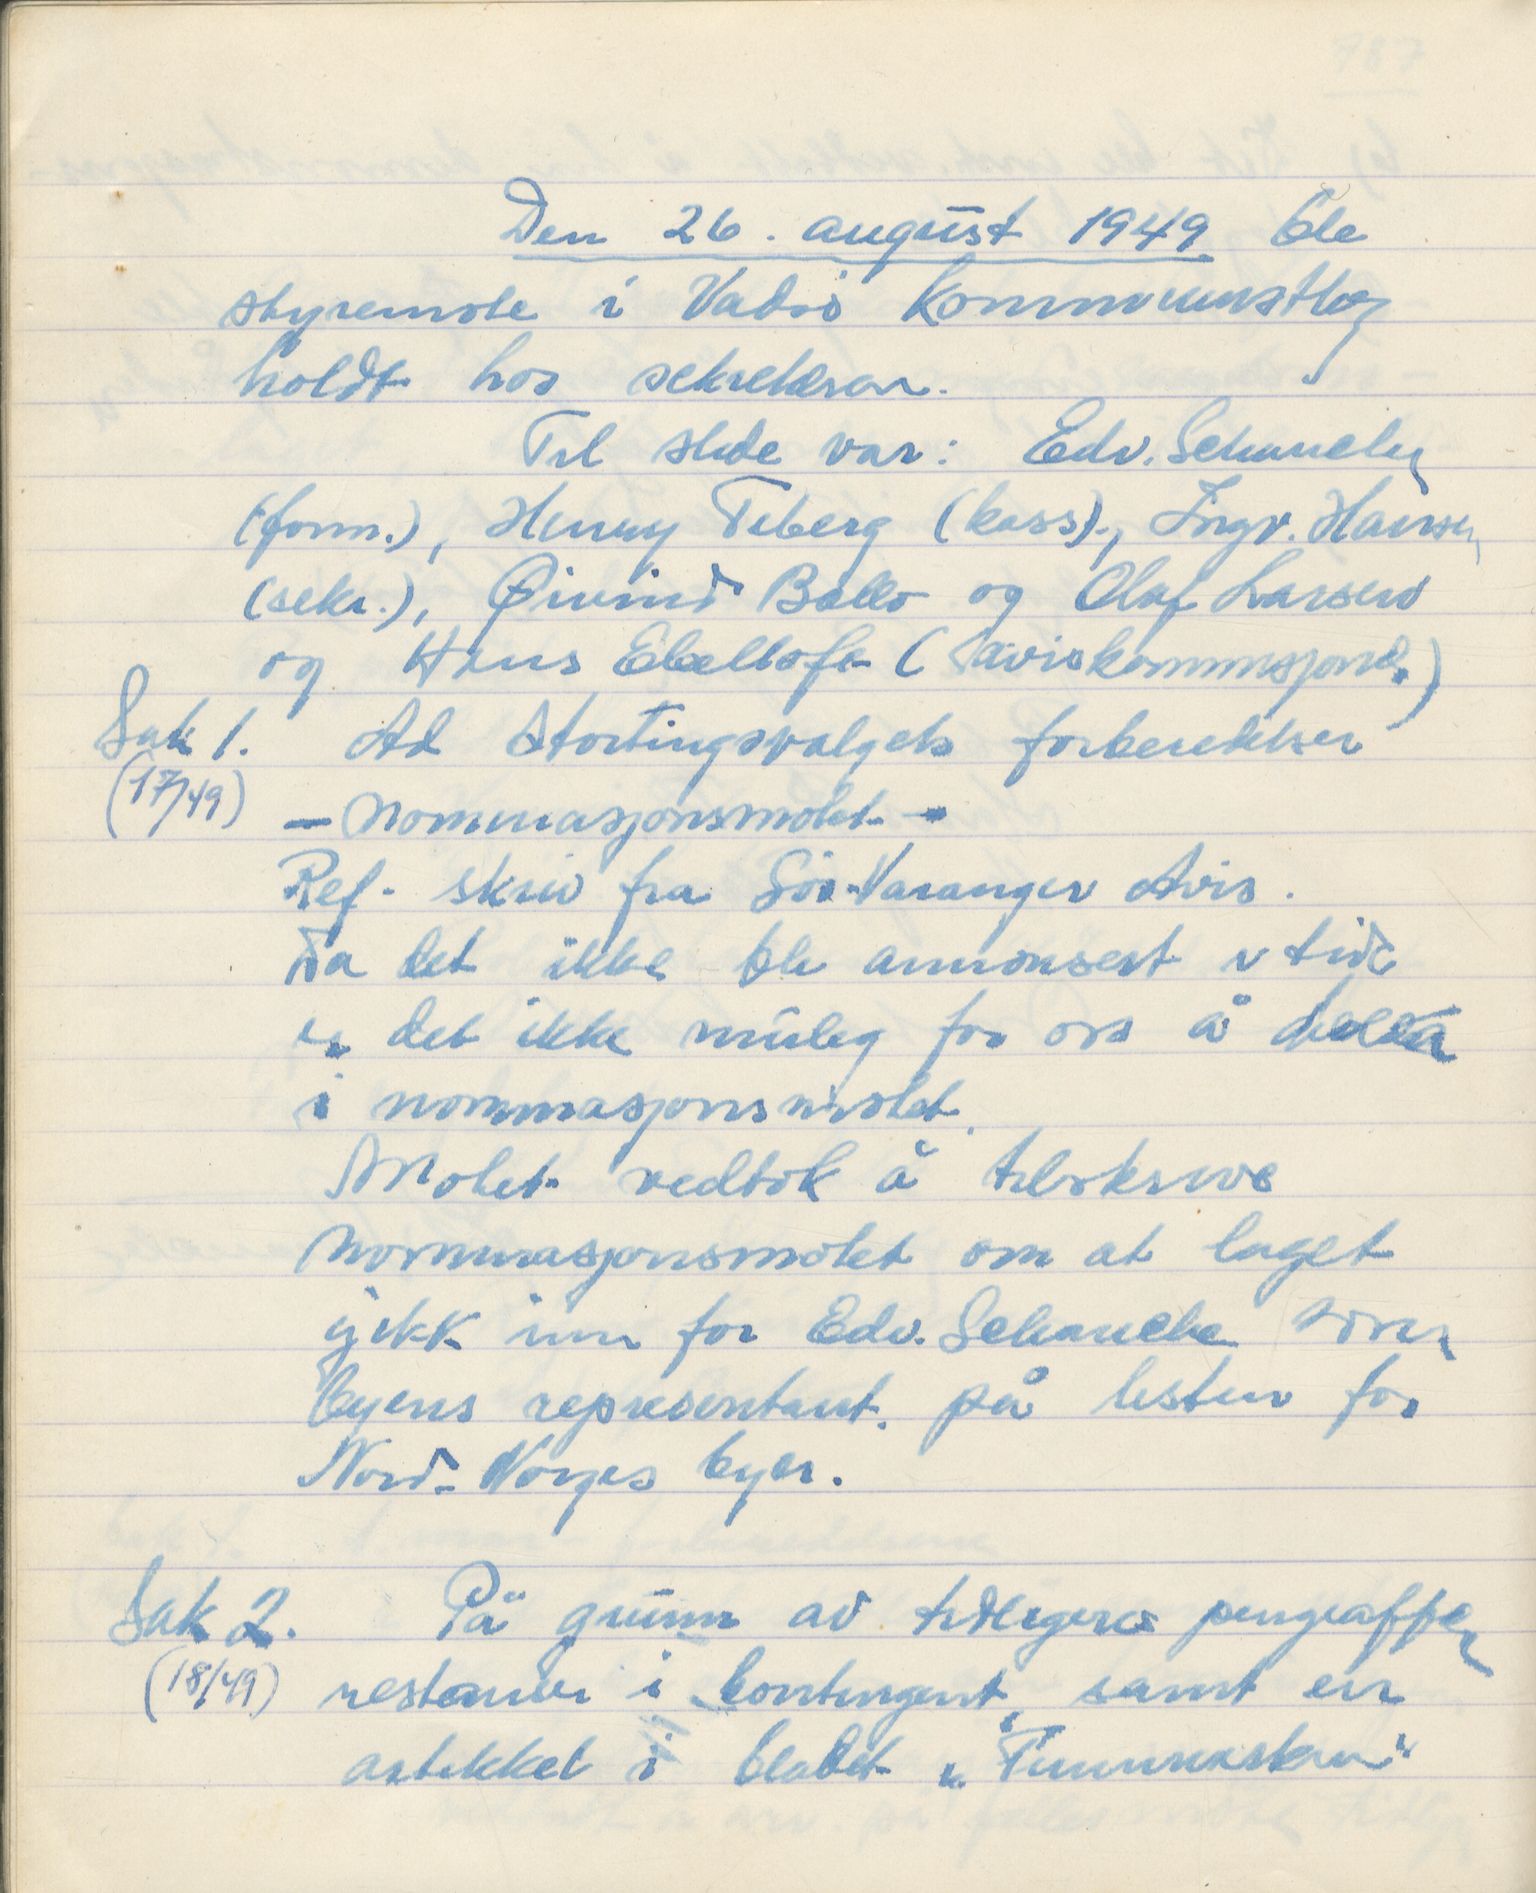 Den 26. august 1949 ble
styremøte i Vadsø Kommunistlag
holdt hos sekretæren.
Til stede var: Edv. Schancke
(form.), Henry Teberg (kass.), Ingv. Hansen
(sekr.), Øivind Ballo og Olaf Larsen
og Hans Ebeltoft (aviskommisjonæ.)
Sak 1. Ad Stortingsvalgets forberedelser
(17/49) - Nominasjonsmøtet -
Ref. skriv fra Sør-Varanger Avis.
Da det ikke ble annonsert i tide
er det ikke mulig for oss å delta
i nominasjonsmøtet.
Møtet vedtok å tilskrive
nominasjonsmøtet om at laget
gikk inn for Edv. Schancke som
byens representant på listen for
Nord-Norges byer.
Sak 2. På grunn av tidligere pengeaffærer
(18/49) restanser i kontingent, samt en
artikkel i bladet „Finnmarken"